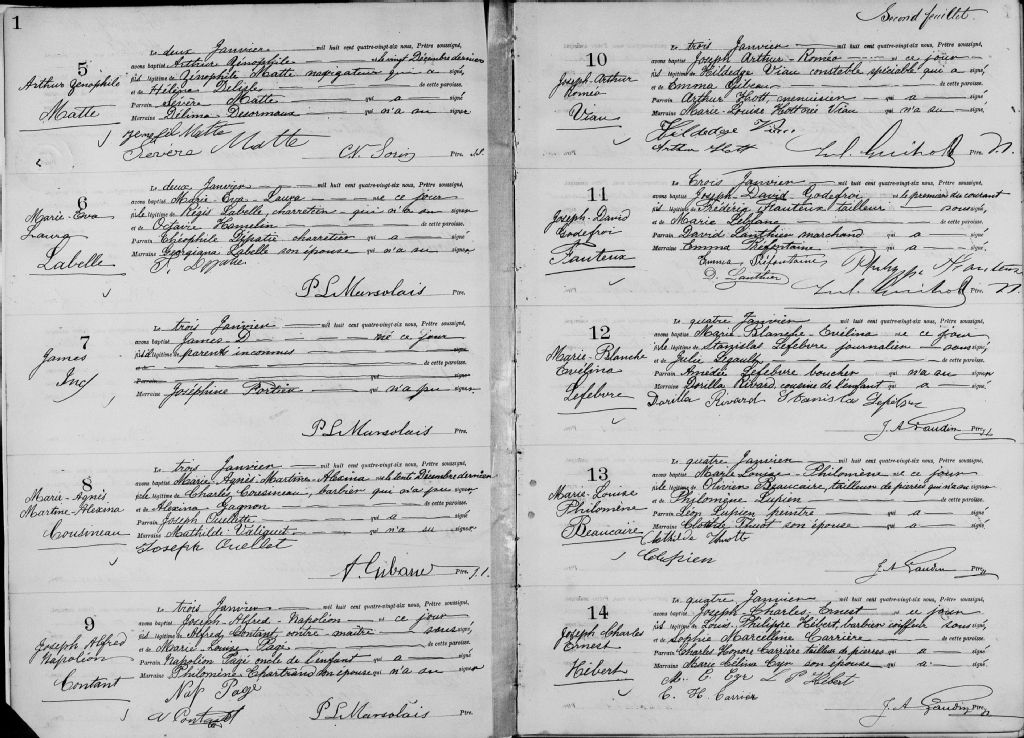 1
5
Arthur Zénophile
Matte
Le deux Janvier mil huit cent quatre-vingt-six nous, Prêtre soussigné,
avons baptisé Arthur Zénophile né le vingt Décembre dernier
fils légitime de Zénophile Matte navigateur qui a signé,
et de Hélène Delisle de cette paroisse.
Parrain Sévère Matte qui a signé
Marraine Délima Desormaux qui n'a su signer
Sévère Matte
Ptre.
6
Marie-Eva
Laura
Labelle
Le deux Janvier mil huit cent quatre-vingt-six nous, Prêtre soussigné,
avons baptisé Marie Eva Laura née ce jour
fille légitime de Régis Labelle, charretier qui n'a su signer
et de Octavie Hamelin de cette paroisse.
Parrain Théophile Dépatie charretier qui a signé
Marraine Georgiana Labelle son épouse qui n'a su signer
P. L. Marsolais Ptre.
7
James
Inc
Le trois Janvier mil huit cent quatre-vingt-six nous, Prêtre soussigné,
avons baptisé James D né ce jour
légitime de parents inconnus
de cette paroisse.
Parrain
Marraine Joséphine Portier qui n'a pu signer
P. L. Marsolais Ptre.
8
Marie-Agnès
Martine-Alexina
Cousineau
Le trois Janvier mil huit cent quatre-vingt-six nous, Prêtre soussigné,
avons baptisé Marie-Agnès Martine-Alexina née le trente Décembre dernier
fille légitime de Charles Cousineau, barbier qui n'a pu signer
et de Alexina Gagnon de cette paroisse.
Parrain Joseph Ouellette qui a signé
Marraine Mathilde Valiquet qui n'a su signer
Joseph Ouellet
Ptre.
9
Joseph Alfred
Napoléon
Contant
Le trois Janvier mil huit cent quatre-vingt-six nous, Prêtre soussigné,
avons baptisé Joseph-Alfred-Napoléon né ce jour
fils légitime de Alfred Contant, contre-maître soussigné,
et de Marie Louise Pagé de cette paroisse.
Parrain Napoléon Pagé oncle de l'enfant qui a signé
Marraine Philomène Chartrand son épouse qui n'a su signer
Nap Page
P. L. Marsolais Ptre.
Second feuillet.
10
Joseph-Arthur
Roméo
Viau
Le trois Janvier mil huit cent quatre-vingt-six nous, Prêtre soussigné,
avons baptisé Joseph Arthur-Roméo né ce jour
fils légitime de Hildedge Viau constable spécial qui a signé,
et de Emma de cette paroisse.
Parrain Arthur Hott, menuisier qui a signé
Marraine Marie-Louise Hott née Viau qui n'a su signer
Hildedge Viau
Arthur Hott
Ptre.
11
Joseph-David
Godefroi
Fauteux
Le Trois Janvier mil huit cent quatre-vingt-six nous, Prêtre soussigné,
avons baptisé Joseph-David Godefroi né le premier du courant
fils légitime de Frédéric Fauteux tailleur soussigné,
et de Marie Leblanc de cette paroisse.
Parrain David Lanthier marchand qui a signé
Marraine Emma Défontaine qui a signé
Emma Défontaine
D. Lanthier
Ptre.
12
Marie-Blanche
Evélina
Lefebvre
Le quatre Janvier mil huit cent quatre-vingt-six nous, Prêtre soussigné,
avons baptisé Marie Blanche-Evélina née ce jour
fille légitime de Stanislas Lefebvre journalier soussigné,
et de Julie Legault de cette paroisse.
Parrain Amédée Lefebvre boucher qui n'a su signer
Marraine Dorilla Rivard cousine de l'enfant qui a signé
Dorilla Rivard
J. A. Gaudin Ptre.
13
Marie-Louise
Philomène
Beaucaire
Le quatre Janvier mil huit cent quatre-vingt-six nous, Prêtre soussigné,
avons baptisé Marie Louise-Philomène née ce jour
fille légitime de Olivier Beaucaire, tailleur de pierres qui n'a su signer
et de Philomène Lupien de cette paroisse.
Parrain Léon Lupien peintre qui a signé
Marraine Clotilde Thuot son épouse qui a signé
J. A. Gaudin Ptre.
14
Joseph Charles
Ernest
Hébert
Le quatre Janvier mil huit cent quatre-vingt-six nous, Prêtre soussigné,
avons baptisé Joseph-Charles-Ernest né ce jour
fils légitime de Louis Philippe Hébert, barbier coiffeur soussigné,
et de Sophie Marcelline Carrière de cette paroisse.
Parrain Charles Honoré Carrière tailleur de pierres qui a signé
Marraine Marie Célina Cyr son épouse qui a signé
L P Hébert
C. H. Carrier
J. A. Gaudin Ptre.